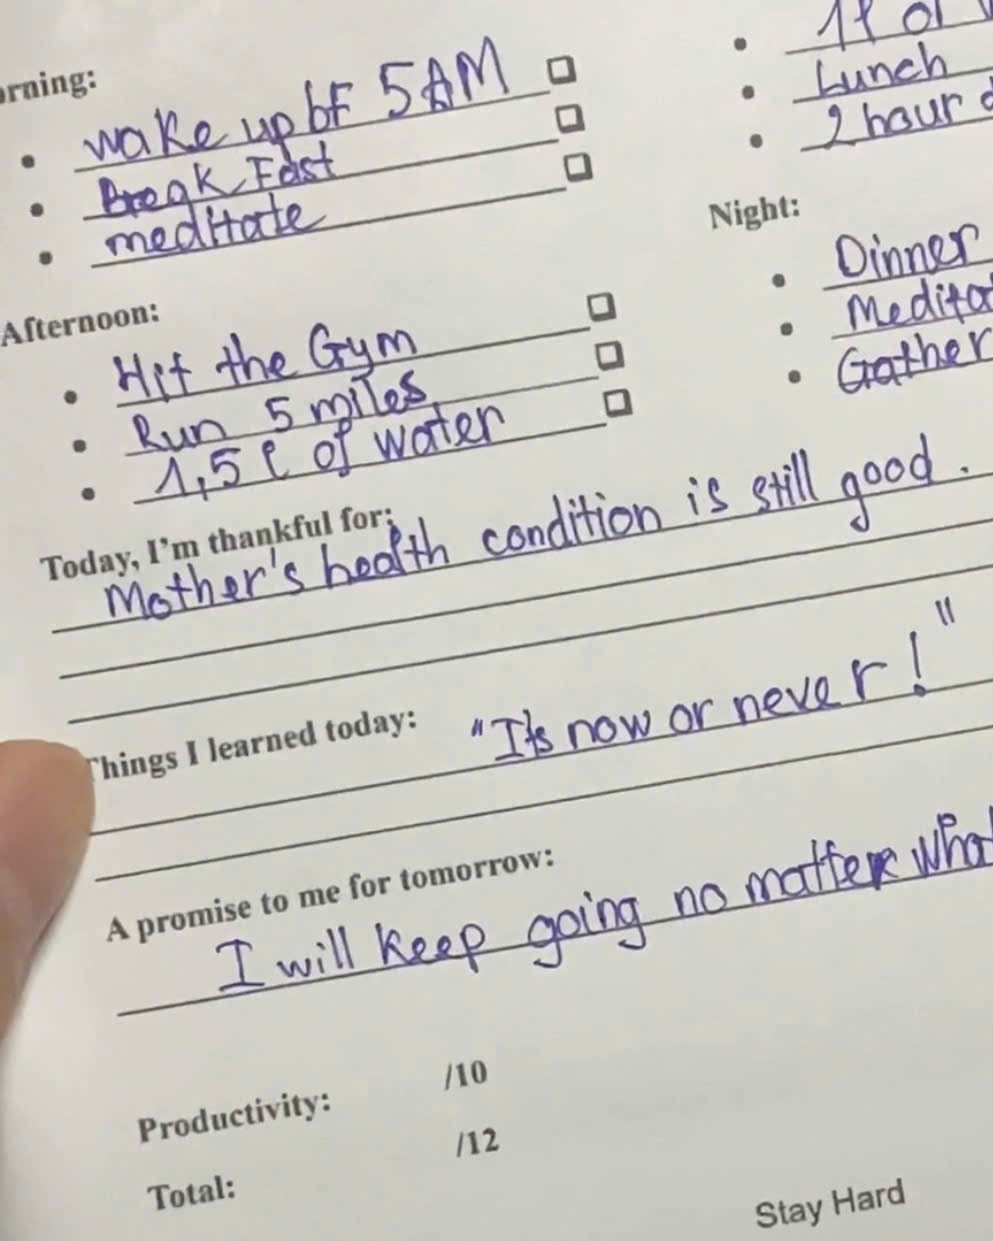 wake up bf 5AM
Break Fast
meditate
Afternoon:
Hit the Gym
Run 5 miles
1,5 l of water
Lunch
2 hour
Night:
Dinner
Gather
Today, I'm thankful for:
Mother's health condition is still good.
Things I learned today: "It's now or never!"
A promise to me for tomorrow:
I will keep going no matter
Productivity: /10
Total: /12
Stay Hard